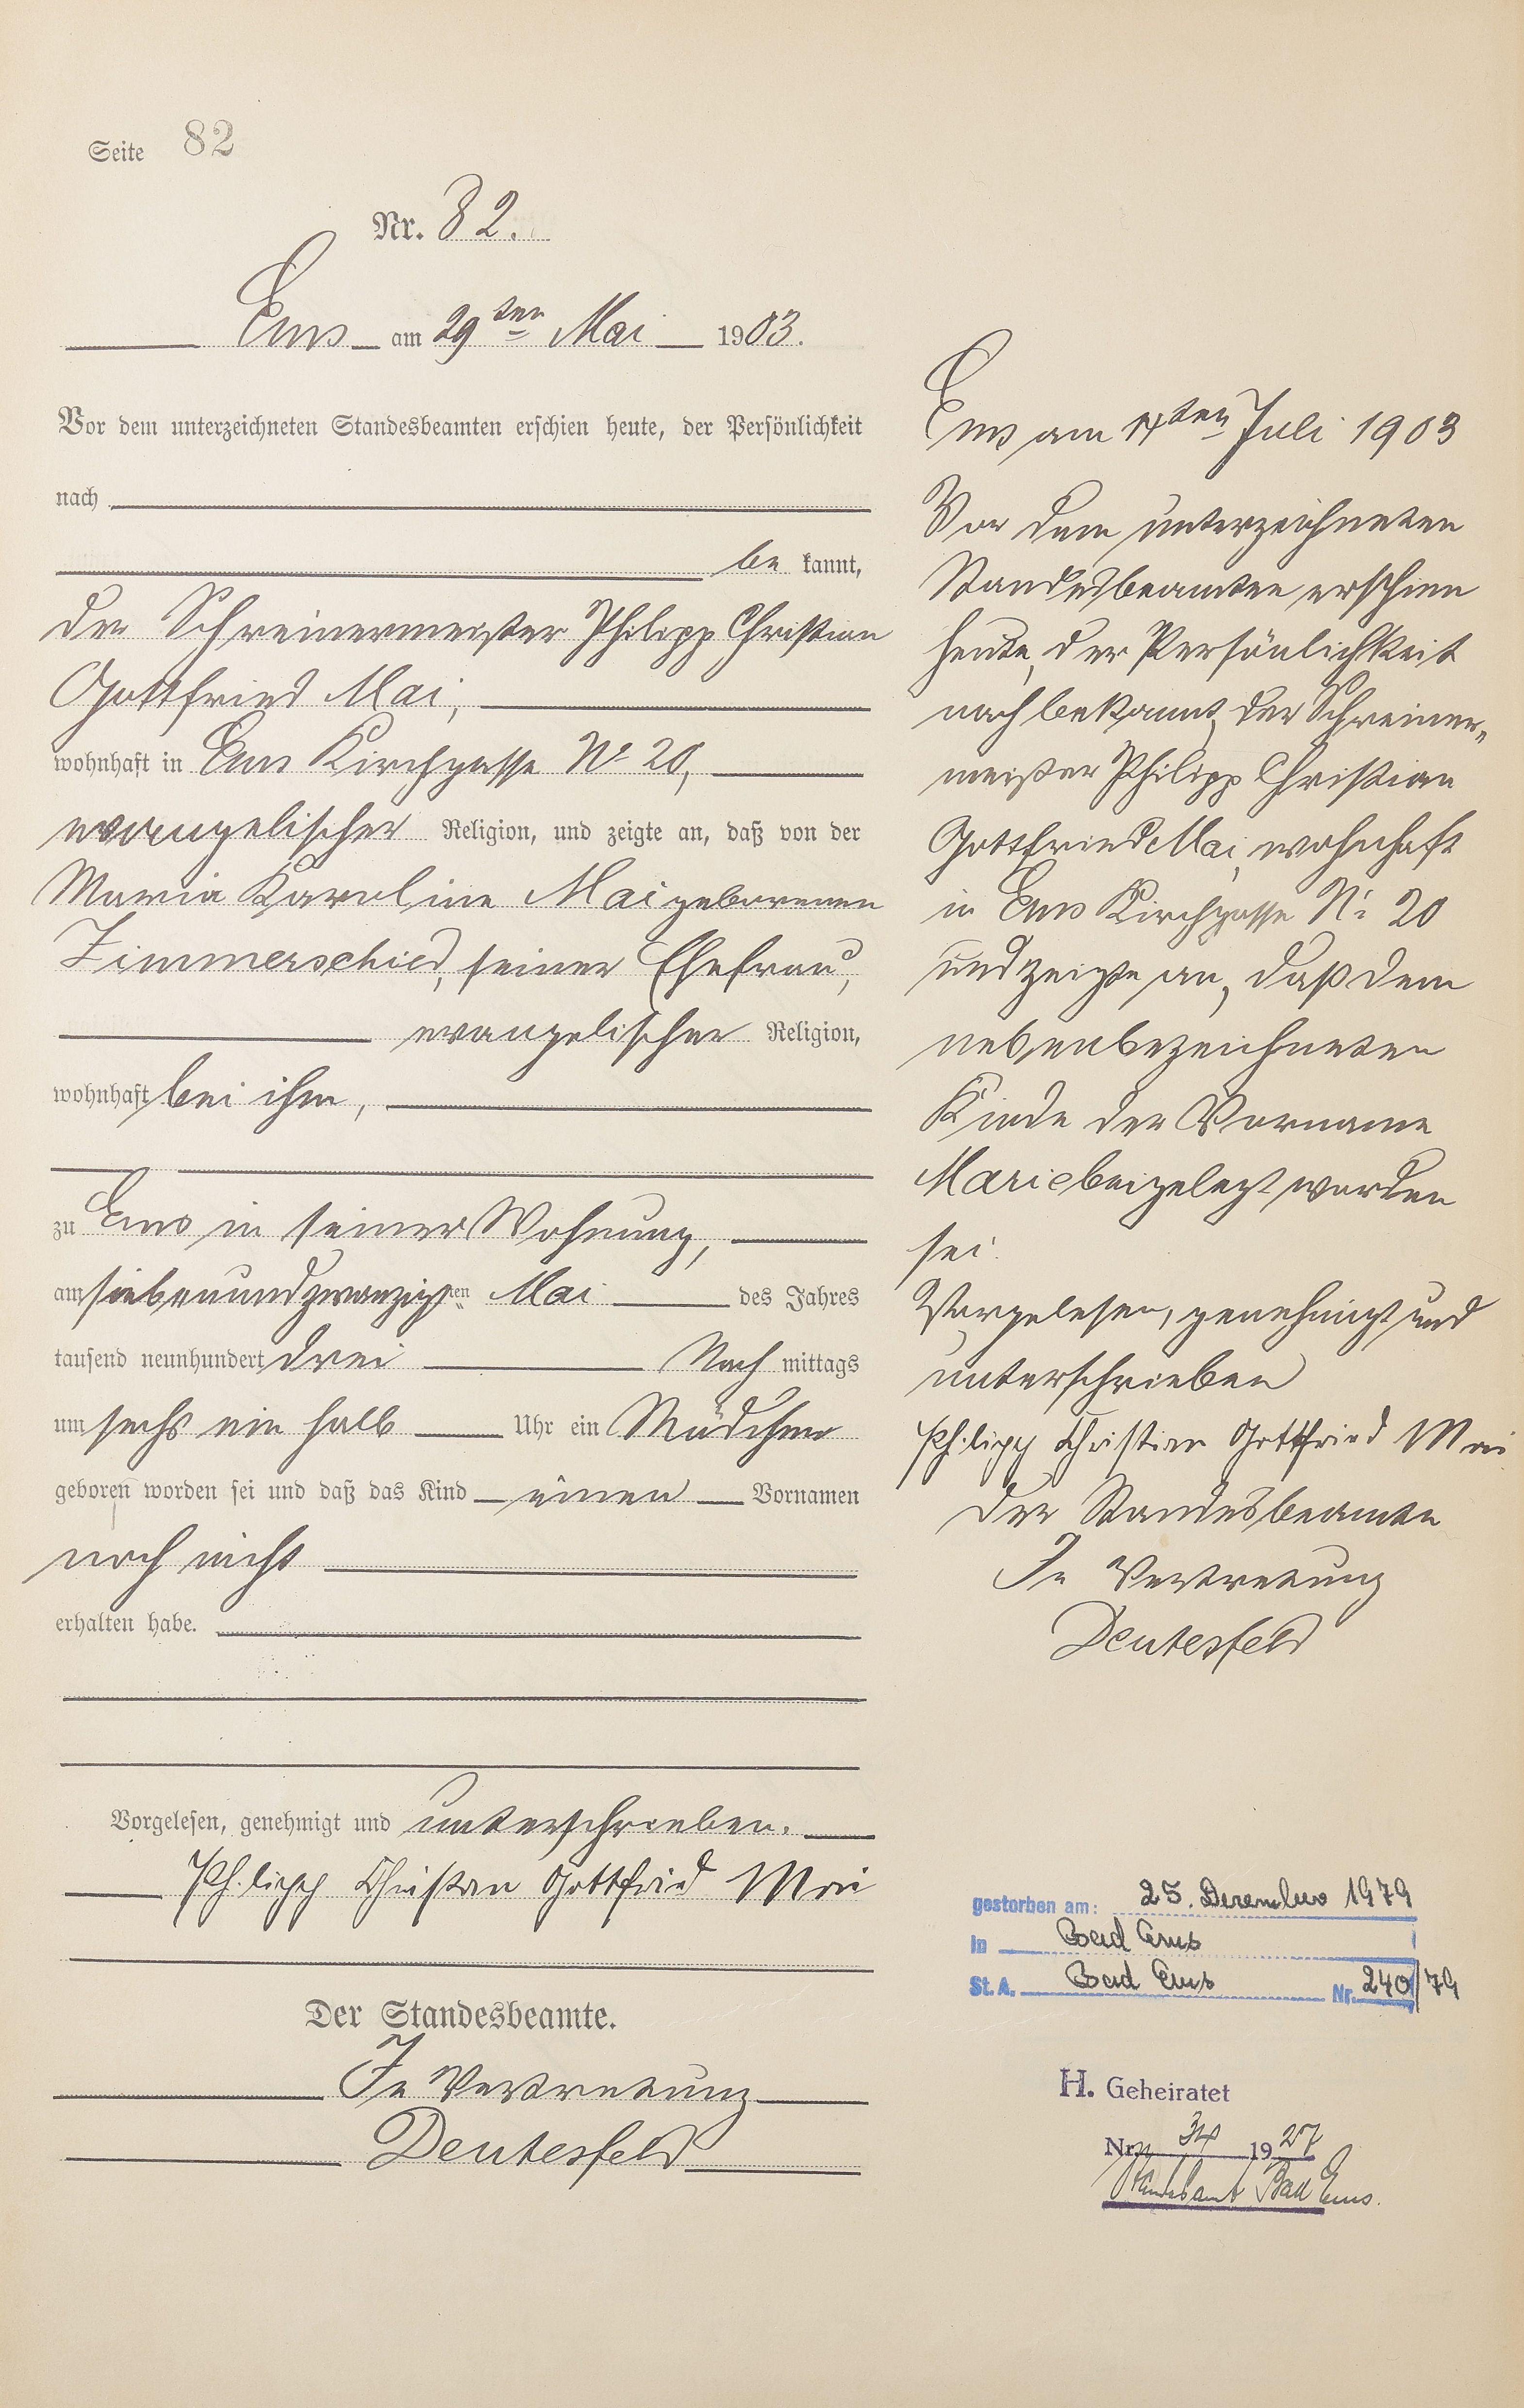 Seite 82
Nr. 82.
Ems am 29ten Mai 1903.
Vor dem unterzeichneten Standesbeamten erschien heute, der Persönlichkeit
nach
be kannt,
der Schreinermeister Philipp Christian
Gottfried Mai,
wohnhaft in Ems Kirchgasse No 20,
evangelischer Religion, und zeigte an, daß von der
Maria Karoline Mai geborenen
Zimmerschied, seiner Ehefrau,
evangelischer Religion,
wohnhaft bei ihm,
zu Ems in seiner Wohnung,
am siebenundzwanzigsten Mai des Jahres
tausend neunhundert drei Nach mittags
um sechs ein halb Uhr ein Mädchen
geboren worden sei und daß das Kind einen Vornamen
noch nicht
erhalten habe.
Vorgelesen, genehmigt und unterschrieben.
Philipp Christian Gottfried Mai
Der Standesbeamte.
In Vertretung
Deutesfeld
Ems am 14ten Juli 1903
Vor dem unterzeichneten
Standesbeamten erschien
heute, der Persönlichkeit
nach bekannt, der Schreiner„
meister Philipp Christian
Gottfried Mai, wohnhaft
in Ems Kirchgasse No 20
und zeigte an, daß dem
nebenbezeichneten
Kinde der Vorname
Marie beigelegt worden
sei.
Vorgelesen, genehmigt und
unterschrieben
Philipp Christian Gottfried Mai
Der Standesbeamte
In Vertretung
Deutesfeld
gestorben am: 25. Dezember 1979
in Bad Ems
St. A. Bad Ems Nr. 240/79
H. Geheiratet
Nr. 34 1927
Standesamt Bad Ems.